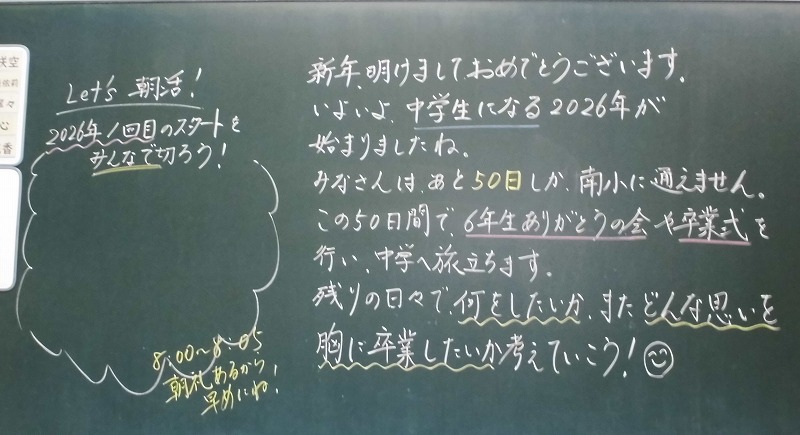 Let's 朝活！
2026年1回目のスタートを
みんなで切ろう！
8:00〜8:05
朝礼あるから
早めにね！
新年、明けましておめでとうございます。
いよいよ、中学生になる2026年が
始まりましたね。
みなさんは、あと50日しか、南小に通えません。
この50日間で、6年生ありがとうの会や卒業式を
行い、中学へ旅立ちます。
残りの日々で、何をしたいか、またどんな思いを
胸に卒業したいか考えていこう！
空
心
香